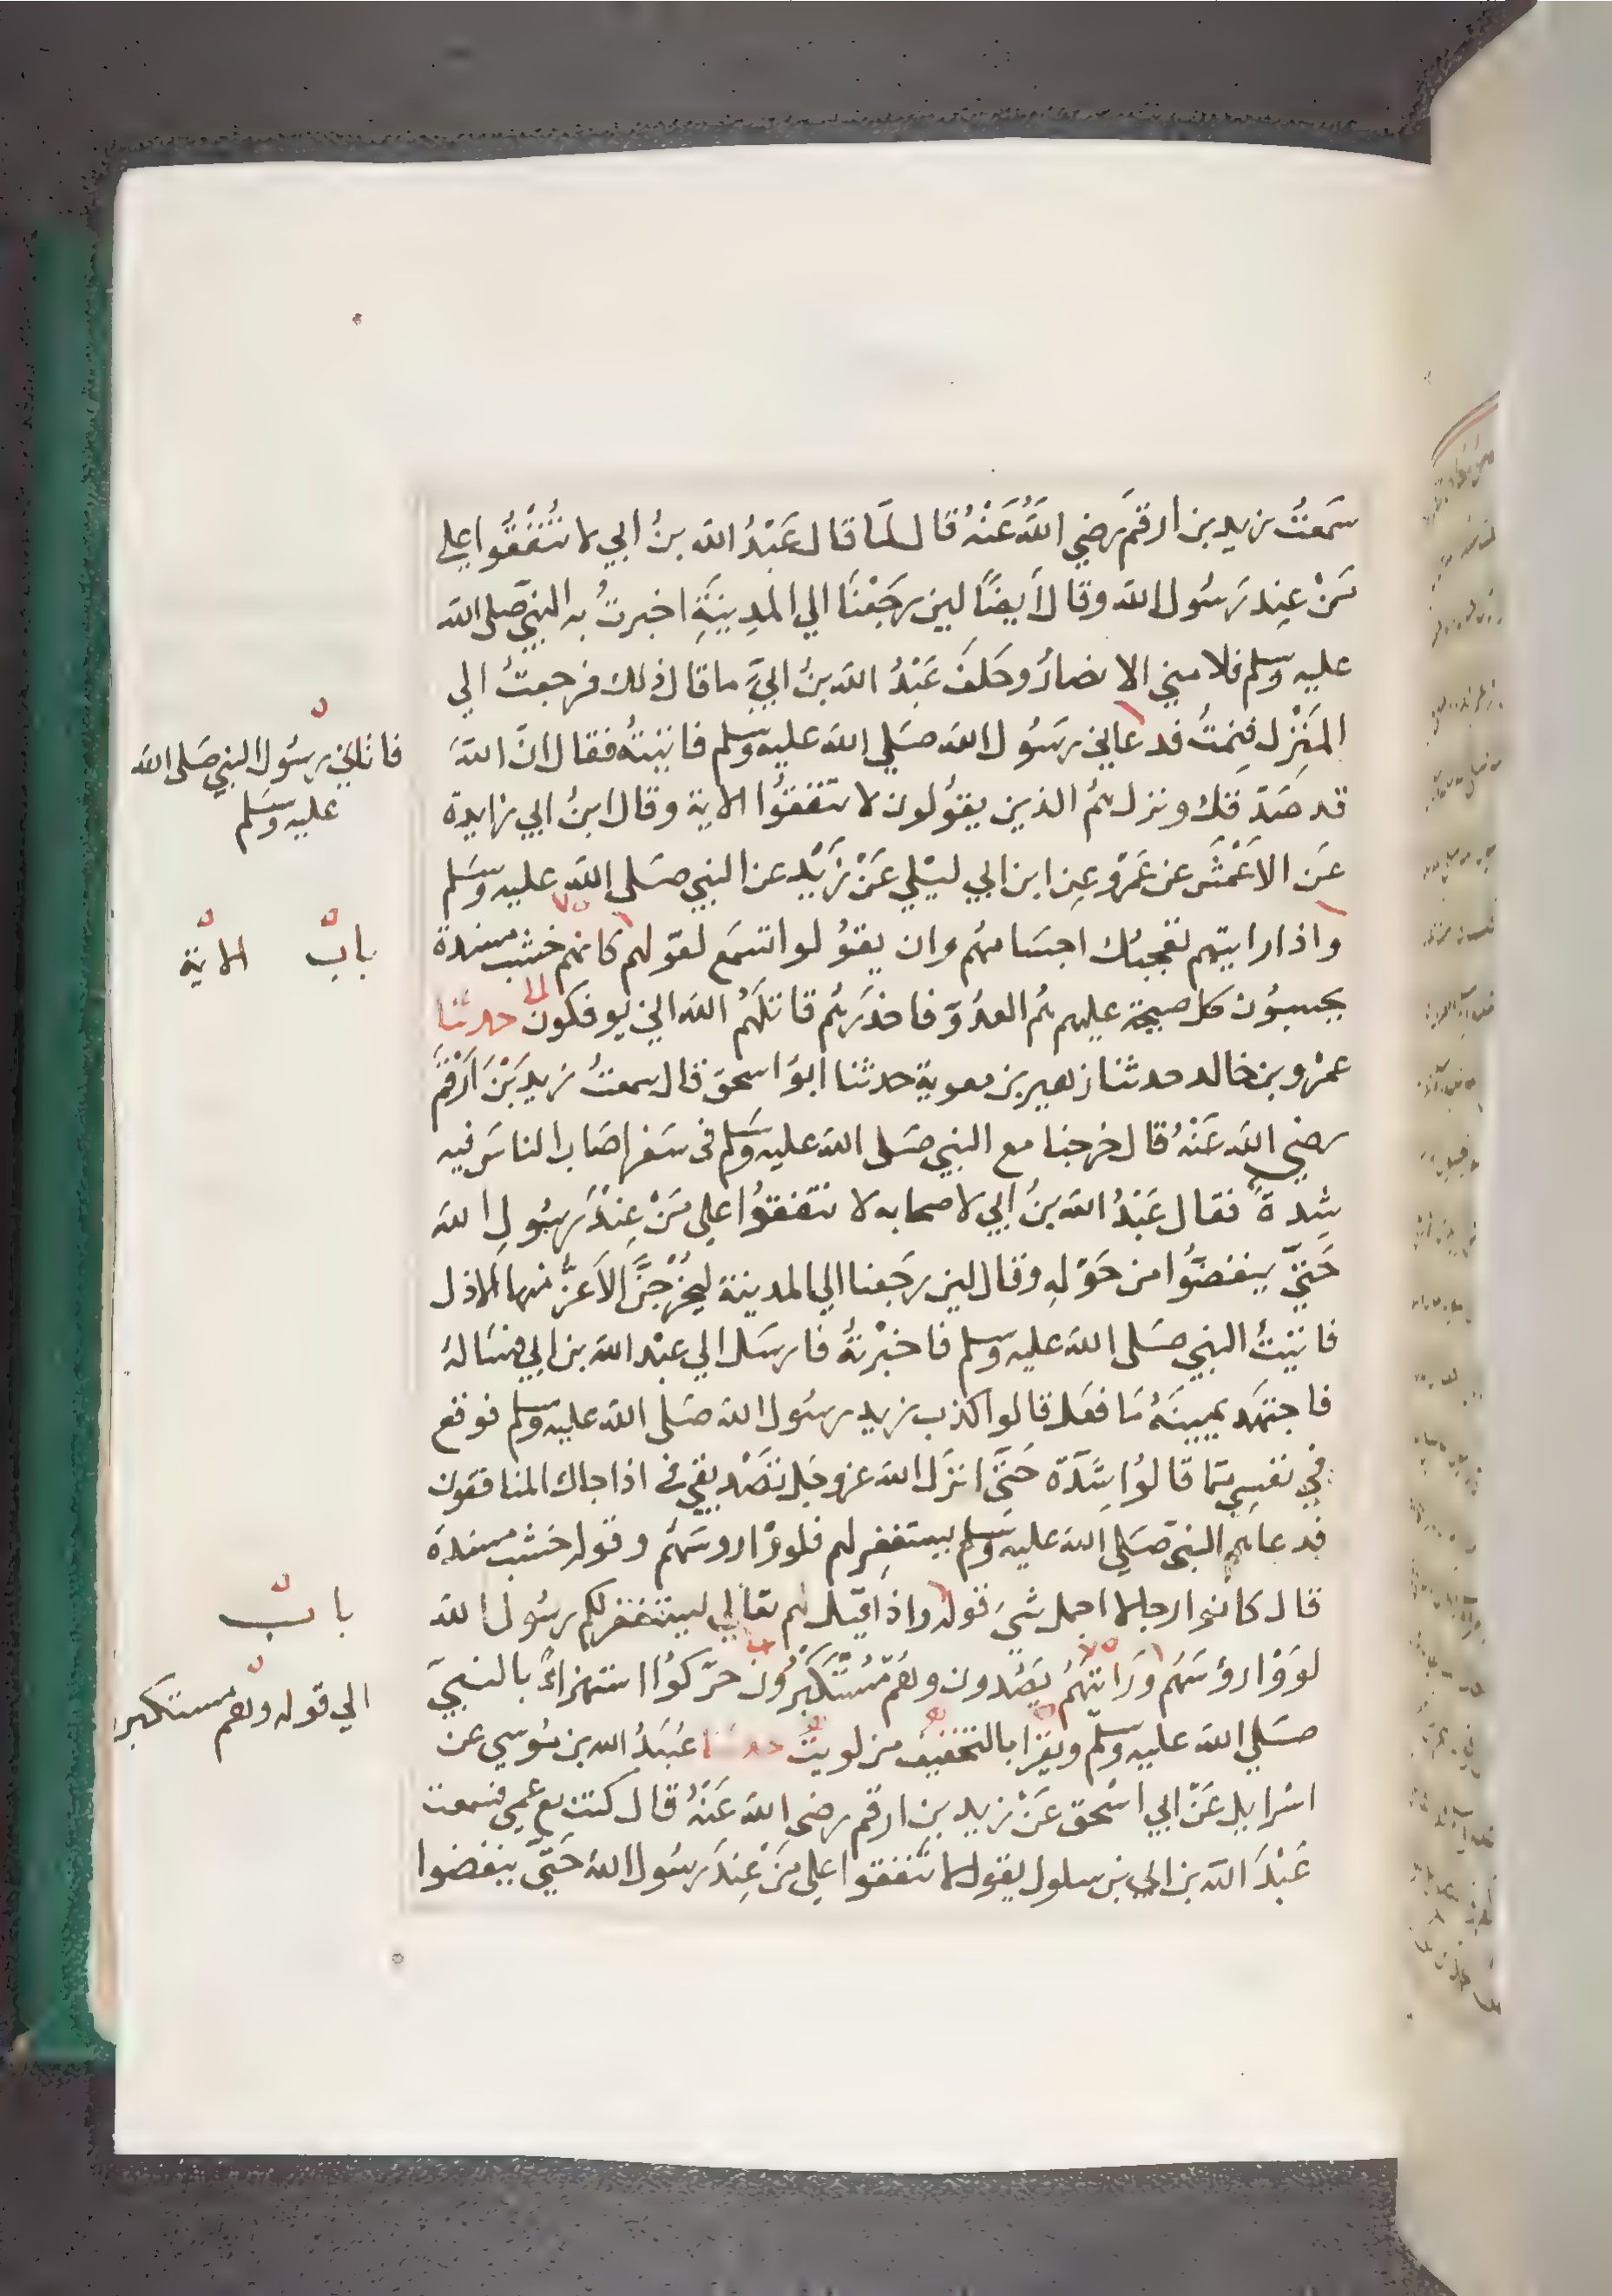 سَمعتُ زيد بن ارقمَ رضي اللهُ عَنْهُ قال لمّا قال عَبْدُ الله بنُ ابي لا تُنْفِقُوا على
مَنْ عِند رَسُول الله وقال أيضًا لين رجَعْنَا الي المدِينَةِ اخبرتُ به النبيَّ صلى الله
عليه وسلم فلامني الانصارُ وحَلفَ عَبْدُ الله بنُ ابيٍّ ما قال ذلك فرجعتُ الي
المَنْزِل فنِمتُ فدعاني رسَوُل الله صَلي الله عليه وسلم فاتيتهُ فقال انّ الله
قد صَدّقكَ ونزل هُم الذين يقوُلون لا تنفقوُا الاية وقال ابنُ ابي زايدة
عَن الاَعْمَش عن عَمْرٍو عن ابن ابي ليْلي عَنْ زَيْدٍ عن النبي صَلي الله عليه وسَلم
واذا رايتهم تعجبُك اجسَامهُم وان يقوُلوا تسمَع لقولهم كانهم خشب مسندة
يحسبوُن كل صيحة عليهم هُم العدُوّ فاحذرَهُم قاتلَهُم الله اني يوفكون حدثنا
عمْرو بن خالد حدثنا زهير بن معوية حدثنا ابوُ اسحق قال سمعتُ زيدَ بْنَ اَرْقمَ
رضي الله عَنْهُ قال خرجنا مع النبي صَلى الله عليه وسَلم فى سَفر اصَاب الناسَ فيه
شِدةٌ فقال عَبْدُ الله بنُ ابي لاصحابه لا تنفقوُا على مَنْ عِنْدَ رسُولِ الله
حَتيّ ينفضُّوا من حَوْلهِ وقال لين رجَعنا الي المدينة ليُخْرِجَنَّ الاَعزُّ منها الاذل
فاتيْتُ النبي صَلى الله عليه وسلم فاخبْرتهُ فارسَل الي عبْد الله بن ابي فسَاله
فاجتهَد يمينَهُ مَا فعَل قالوا كذب زيد رسُول الله صَلى الله عليه وسلم فوقع
في نفسِي ممّا قالوُا شِدّة حَتيّ انزَل الله عز وجَل تصْديقي في اذا جاك المنافقون
فدعاهم النبيّ صَلي الله عليه وسَلم ليستغفِر لهم فلوّوْا روسَهُم وقوله خشب مسندة
قال كانوا رجالا اجمل شيَ قوله واذا قيَل لهم تعالي ليستغفر لكم رسُول الله
لوَوْا رؤسَهُم ورَايتهُم يَصُدون وهُم مّسْتكْبِرُون حَرّكوُا استهزاءً بالنبيّ
صَلي الله عليه وسلّم ويُقرَا بالتخفيف من لويتُ حدثنا عُبَيدُ الله بن مُوسي عن
اسْرايل عَنْ ابي اسْحق عَنْ زيد بن ارقم رضى الله عَنْهُ قال كنت مع عمي فسمعت
عَبْدَ الله بن ابي بن سلول يقول لا تنُفقوا علي مَنْ عِندَ رسُول الله حَتيّ ينفضوا
فاتاني رسُول النبي صَلى الله
عليه وسَلم
بابٌ الاية
بابٌ
الي قوله وهم مستكبرون